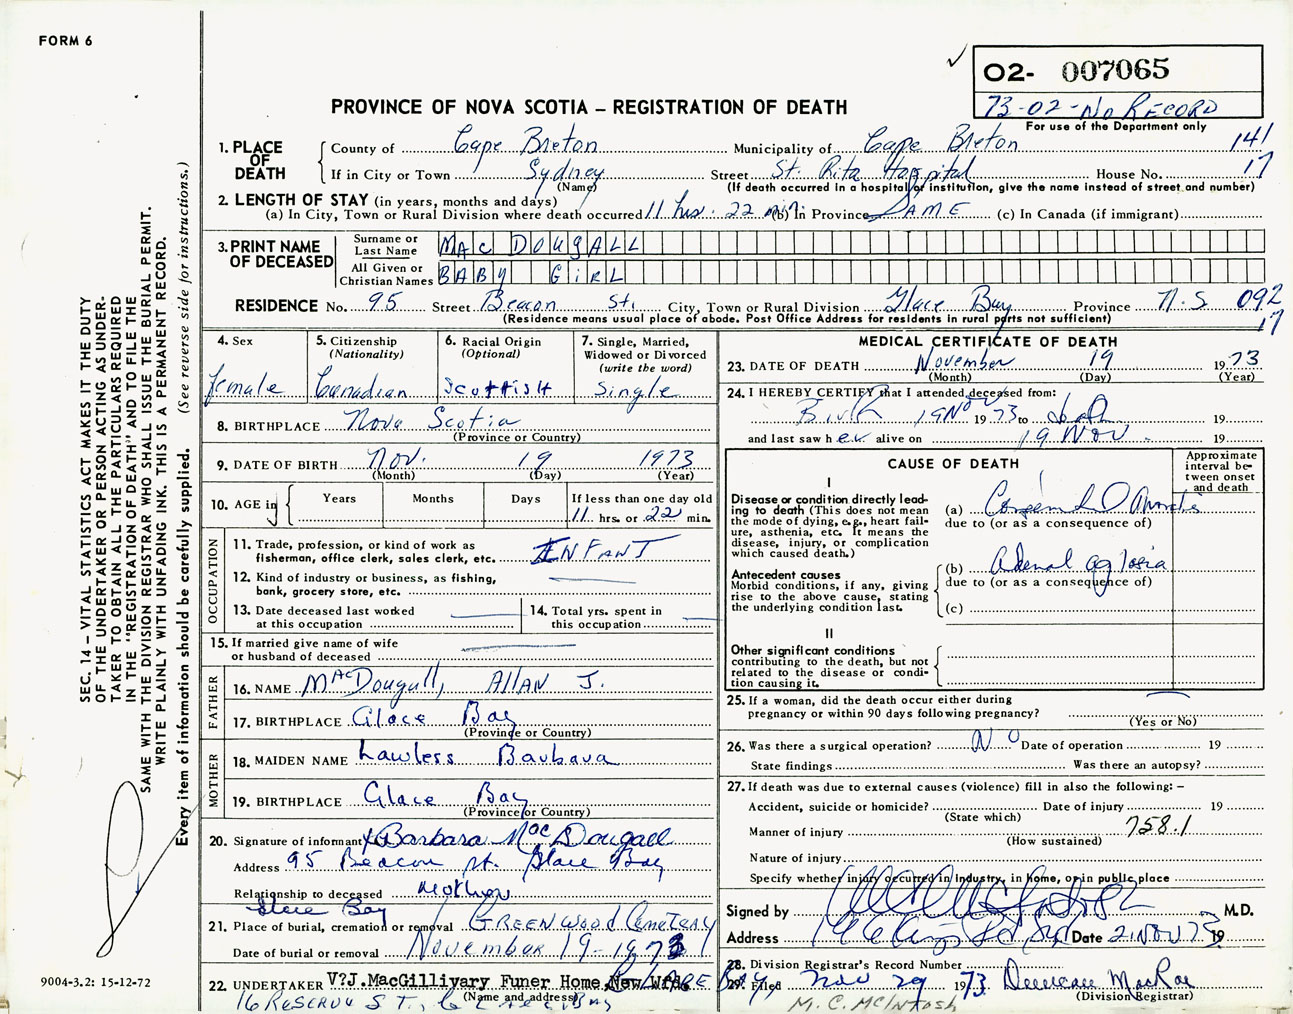 FORM 6
✓ O2- 007065
73-02-No RECORD
For use of the Department only
PROVINCE OF NOVA SCOTIA – REGISTRATION OF DEATH
1. PLACE OF DEATH
County of Cape Breton Municipality of Cape Breton 141
If in City or Town Sydney Street St. Rita Hospital House No. 17
(Name) (If death occurred in a hospital or institution, give the name instead of street and number)
2. LENGTH OF STAY (in years, months and days)
(a) In City, Town or Rural Division where death occurred 11 hrs. 22 min. (b) In Province SAME (c) In Canada (if immigrant)
3. PRINT NAME OF DECEASED
Surname or Last Name MAC DOUGALL
All Given or Christian Names BABY GIRL
RESIDENCE No. 95 Street Beacon St. City, Town or Rural Division Glace Bay Province N.S 092
(Residence means usual place of abode. Post Office Address for residents in rural parts not sufficient) 17
4. Sex
female
5. Citizenship
(Nationality)
Canadian
6. Racial Origin
(Optional)
Scottish
7. Single, Married,
Widowed or Divorced
(write the word)
Single
8. BIRTHPLACE Nova Scotia
(Province or Country)
9. DATE OF BIRTH Nov. 19 1973
(Month) (Day) (Year)
10. AGE in Years Months Days If less than one day old
11 hrs. or 22 min.
OCCUPATION
11. Trade, profession, or kind of work as
fisherman, office clerk, sales clerk, etc. INFANT
12. Kind of industry or business, as fishing,
bank, grocery store, etc.
13. Date deceased last worked
at this occupation
14. Total yrs. spent in
this occupation
15. If married give name of wife
or husband of deceased
FATHER
16. NAME MacDougall, ALLAN J.
17. BIRTHPLACE Glace Bay
(Province or Country)
MOTHER
18. MAIDEN NAME Lawless Barbara
19. BIRTHPLACE Glace Bay
(Province or Country)
20. Signature of informant X Barbara MacDougall
Address 95 Beacon St. Glace Bay
Relationship to deceased Mother
Glace Bay
21. Place of burial, cremation or removal GREENWOOD Cemetery
Date of burial or removal November 19-1973
22. UNDERTAKER V?J.MacGillivary Funer Home,New
(Name and address)
16 Reserve ST, Glace Bay
MEDICAL CERTIFICATE OF DEATH
23. DATE OF DEATH November 19 1973
(Month) (Day) (Year)
24. I HEREBY CERTIFY that I attended deceased from:
Birth 19 Nov 1973 to death 19
and last saw her alive on 19 Nov. 19
CAUSE OF DEATH
Approximate
interval be-
tween onset
and death
I
Disease or condition directly lead-
ing to death (This does not mean
the mode of dying, e.g., heart fail-
ure, asthenia, etc. It means the
disease, injury, or complication
which caused death.)
(a)
due to (or as a consequence of)
Antecedent causes
Morbid conditions, if any, giving
rise to the above cause, stating
the underlying condition last.
(b) Adrenal aplasia
due to (or as a consequence of)
(c)
II
Other significant conditions
contributing to the death, but not
related to the disease or condi-
tion causing it.
25. If a woman, did the death occur either during
pregnancy or within 90 days following pregnancy?
(Yes or No)
26. Was there a surgical operation? No Date of operation 19
State findings Was there an autopsy?
27. If death was due to external causes (violence) fill in also the following: –
Accident, suicide or homicide? Date of injury 19
(State which)
Manner of injury 758.1
(How sustained)
Nature of injury
Specify whether injury occurred in Industry, in home, or in public place
Signed by M.D.
Address Date 21 Nov 73 19
28. Division Registrar's Record Number
29. Filed Nov 29 1973 Duncan MacRae
(Division Registrar)
M. C. McIntosh
SEC. 14 – VITAL STATISTICS ACT MAKES IT THE DUTY
OF THE UNDERTAKER OR PERSON ACTING AS UNDER-
TAKER TO OBTAIN ALL THE PARTICULARS REQUIRED
IN THE "REGISTRATION OF DEATH" AND TO FILE THE
SAME WITH THE DIVISION REGISTRAR WHO SHALL ISSUE THE BURIAL PERMIT.
WRITE PLAINLY WITH UNFADING INK. THIS IS A PERMANENT RECORD.
Every item of information should be carefully supplied. (See reverse side for instructions.)
9004-3.2: 15-12-72